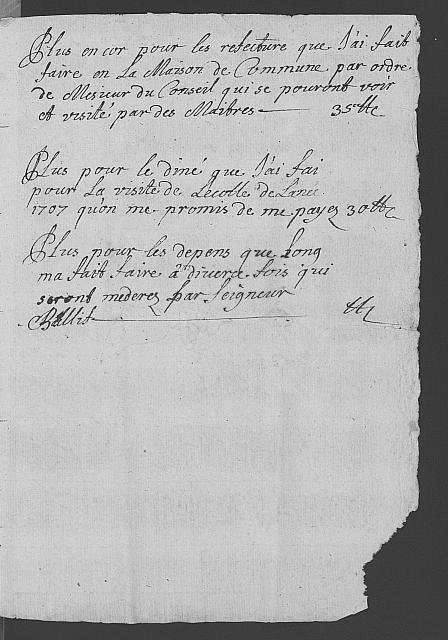 Plus encor pour les refecture que J'ai fait
faire en La Maison de Commune par ordre
de Mesieur du Conseil qui se pouront voir
et visité par des Maitres 35 tt
Plus pour le diné que J'ai fai
pour La visite de Lecolle de Lané
1707 qu'on me promis de me payez 30 tt
Plus pour les depens que Long
ma fait faire à diverce fois qui
seront mederez par Seigneur
Ballif tt